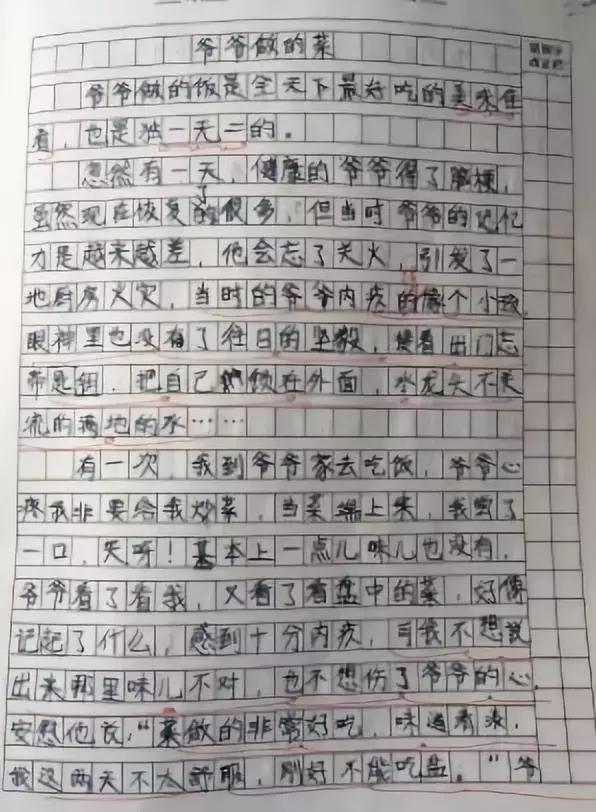 爷爷做的菜
爷爷做的饭是全天下最好吃的美味佳
肴,也是独一无二的。
忽然有一天,健康的爷爷得了脑梗,
虽然现在恢复了的很多,但当时爷爷的记忆
力是越来越差,他会忘了关火,引发了一
地厨房火灾,当时的爷爷内疚的像个小孩,
眼神里也没有了往日的坚毅,接着出门忘
带钥匙,把自己锁在外面,水龙头不关
流的满地的水……
有一次,我到爷爷家去吃饭,爷爷心
疼我非要给我炒菜,当菜端上来,我尝了
一口,天呀!基本上一点儿味儿也没有,
爷爷看了看我,又看了看盘中的菜,好像
记起了什么,感到十分内疚,可我不想说
出来那里味儿不对,也不想伤了爷爷的心,
安慰他说:“菜做的非常好吃,味道有淡,
我这两天不太舒服,刚好不能吃盐。”爷